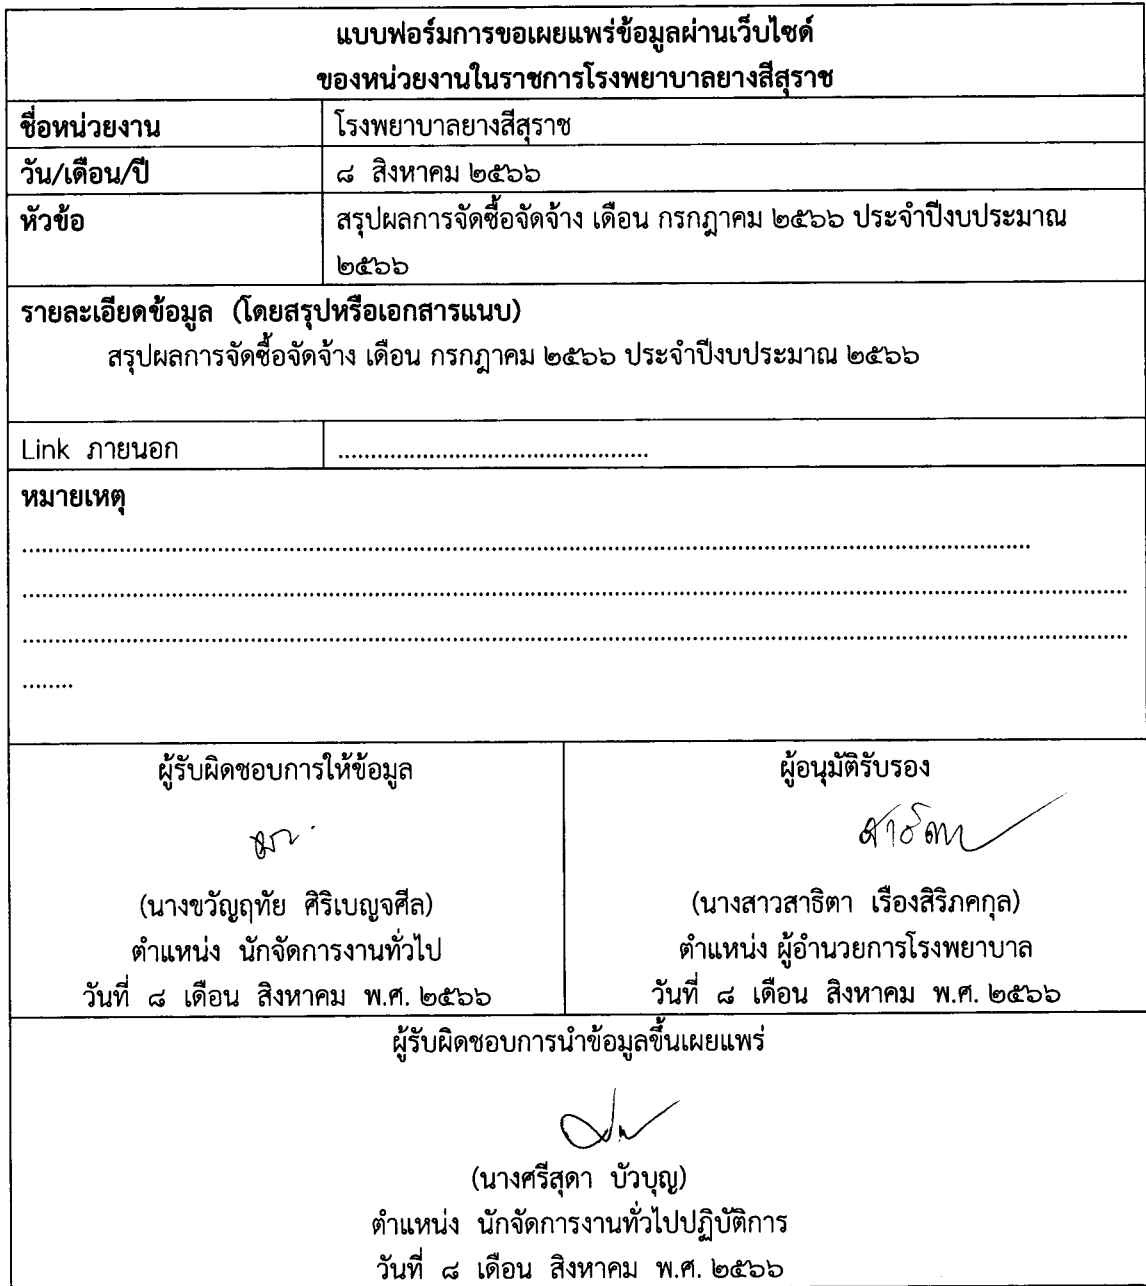 แบบฟอร์มการขอเผยแพร่ข้อมูลผ่านเว็บไซด์
ของหน่วยงานในราชการโรงพยาบาลยางสีสุราช
ชื่อหน่วยงาน โรงพยาบาลยางสีสุราช
วัน/เดือน/ปี ๘ สิงหาคม ๒๕๖๖
หัวข้อ สรุปผลการจัดซื้อจัดจ้าง เดือน กรกฎาคม ๒๕๖๖ ประจำปีงบประมาณ
๒๕๖๖
รายละเอียดข้อมูล (โดยสรุปหรือเอกสารแนบ)
สรุปผลการจัดซื้อจัดจ้าง เดือน กรกฎาคม ๒๕๖๖ ประจำปีงบประมาณ ๒๕๖๖
Link ภายนอก ................................................
หมายเหตุ
ผู้รับผิดชอบการให้ข้อมูล
(นางขวัญฤทัย ศิริเบญจศีล)
ตำแหน่ง นักจัดการงานทั่วไป
วันที่ ๘ เดือน สิงหาคม พ.ศ. ๒๕๖๖
ผู้อนุมัติรับรอง
สาธิตา
(นางสาวสาธิตา เรืองสิริภคกุล)
ตำแหน่ง ผู้อำนวยการโรงพยาบาล
วันที่ ๘ เดือน สิงหาคม พ.ศ. ๒๕๖๖
ผู้รับผิดชอบการนำข้อมูลขึ้นเผยแพร่
(นางศรีสุดา บัวบุญ)
ตำแหน่ง นักจัดการงานทั่วไปปฏิบัติการ
วันที่ ๘ เดือน สิงหาคม พ.ศ. ๒๕๖๖